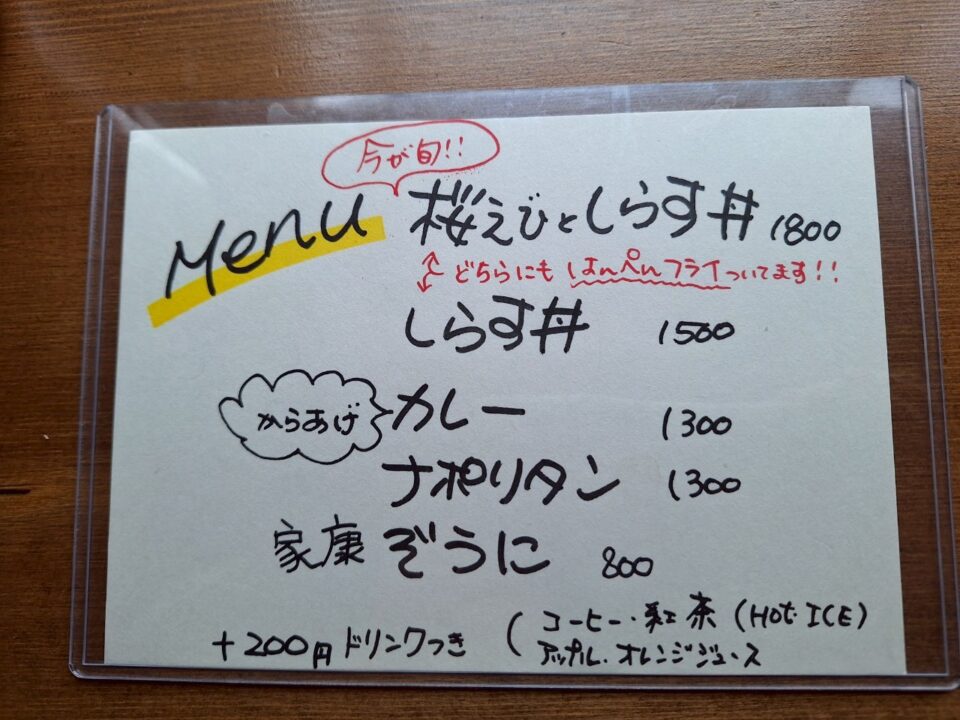 今が旬!!
Menu
桜えびとしらす丼 1800
どちらにも はんぺんフライついてます!!
しらす丼 1500
からあげ カレー 1300
ナポリタン 1300
家康 ぞうに 800
+200円 ドリンクつき ( コーヒー・紅茶 (Hot・ICE)
アップル・オレンジジュース